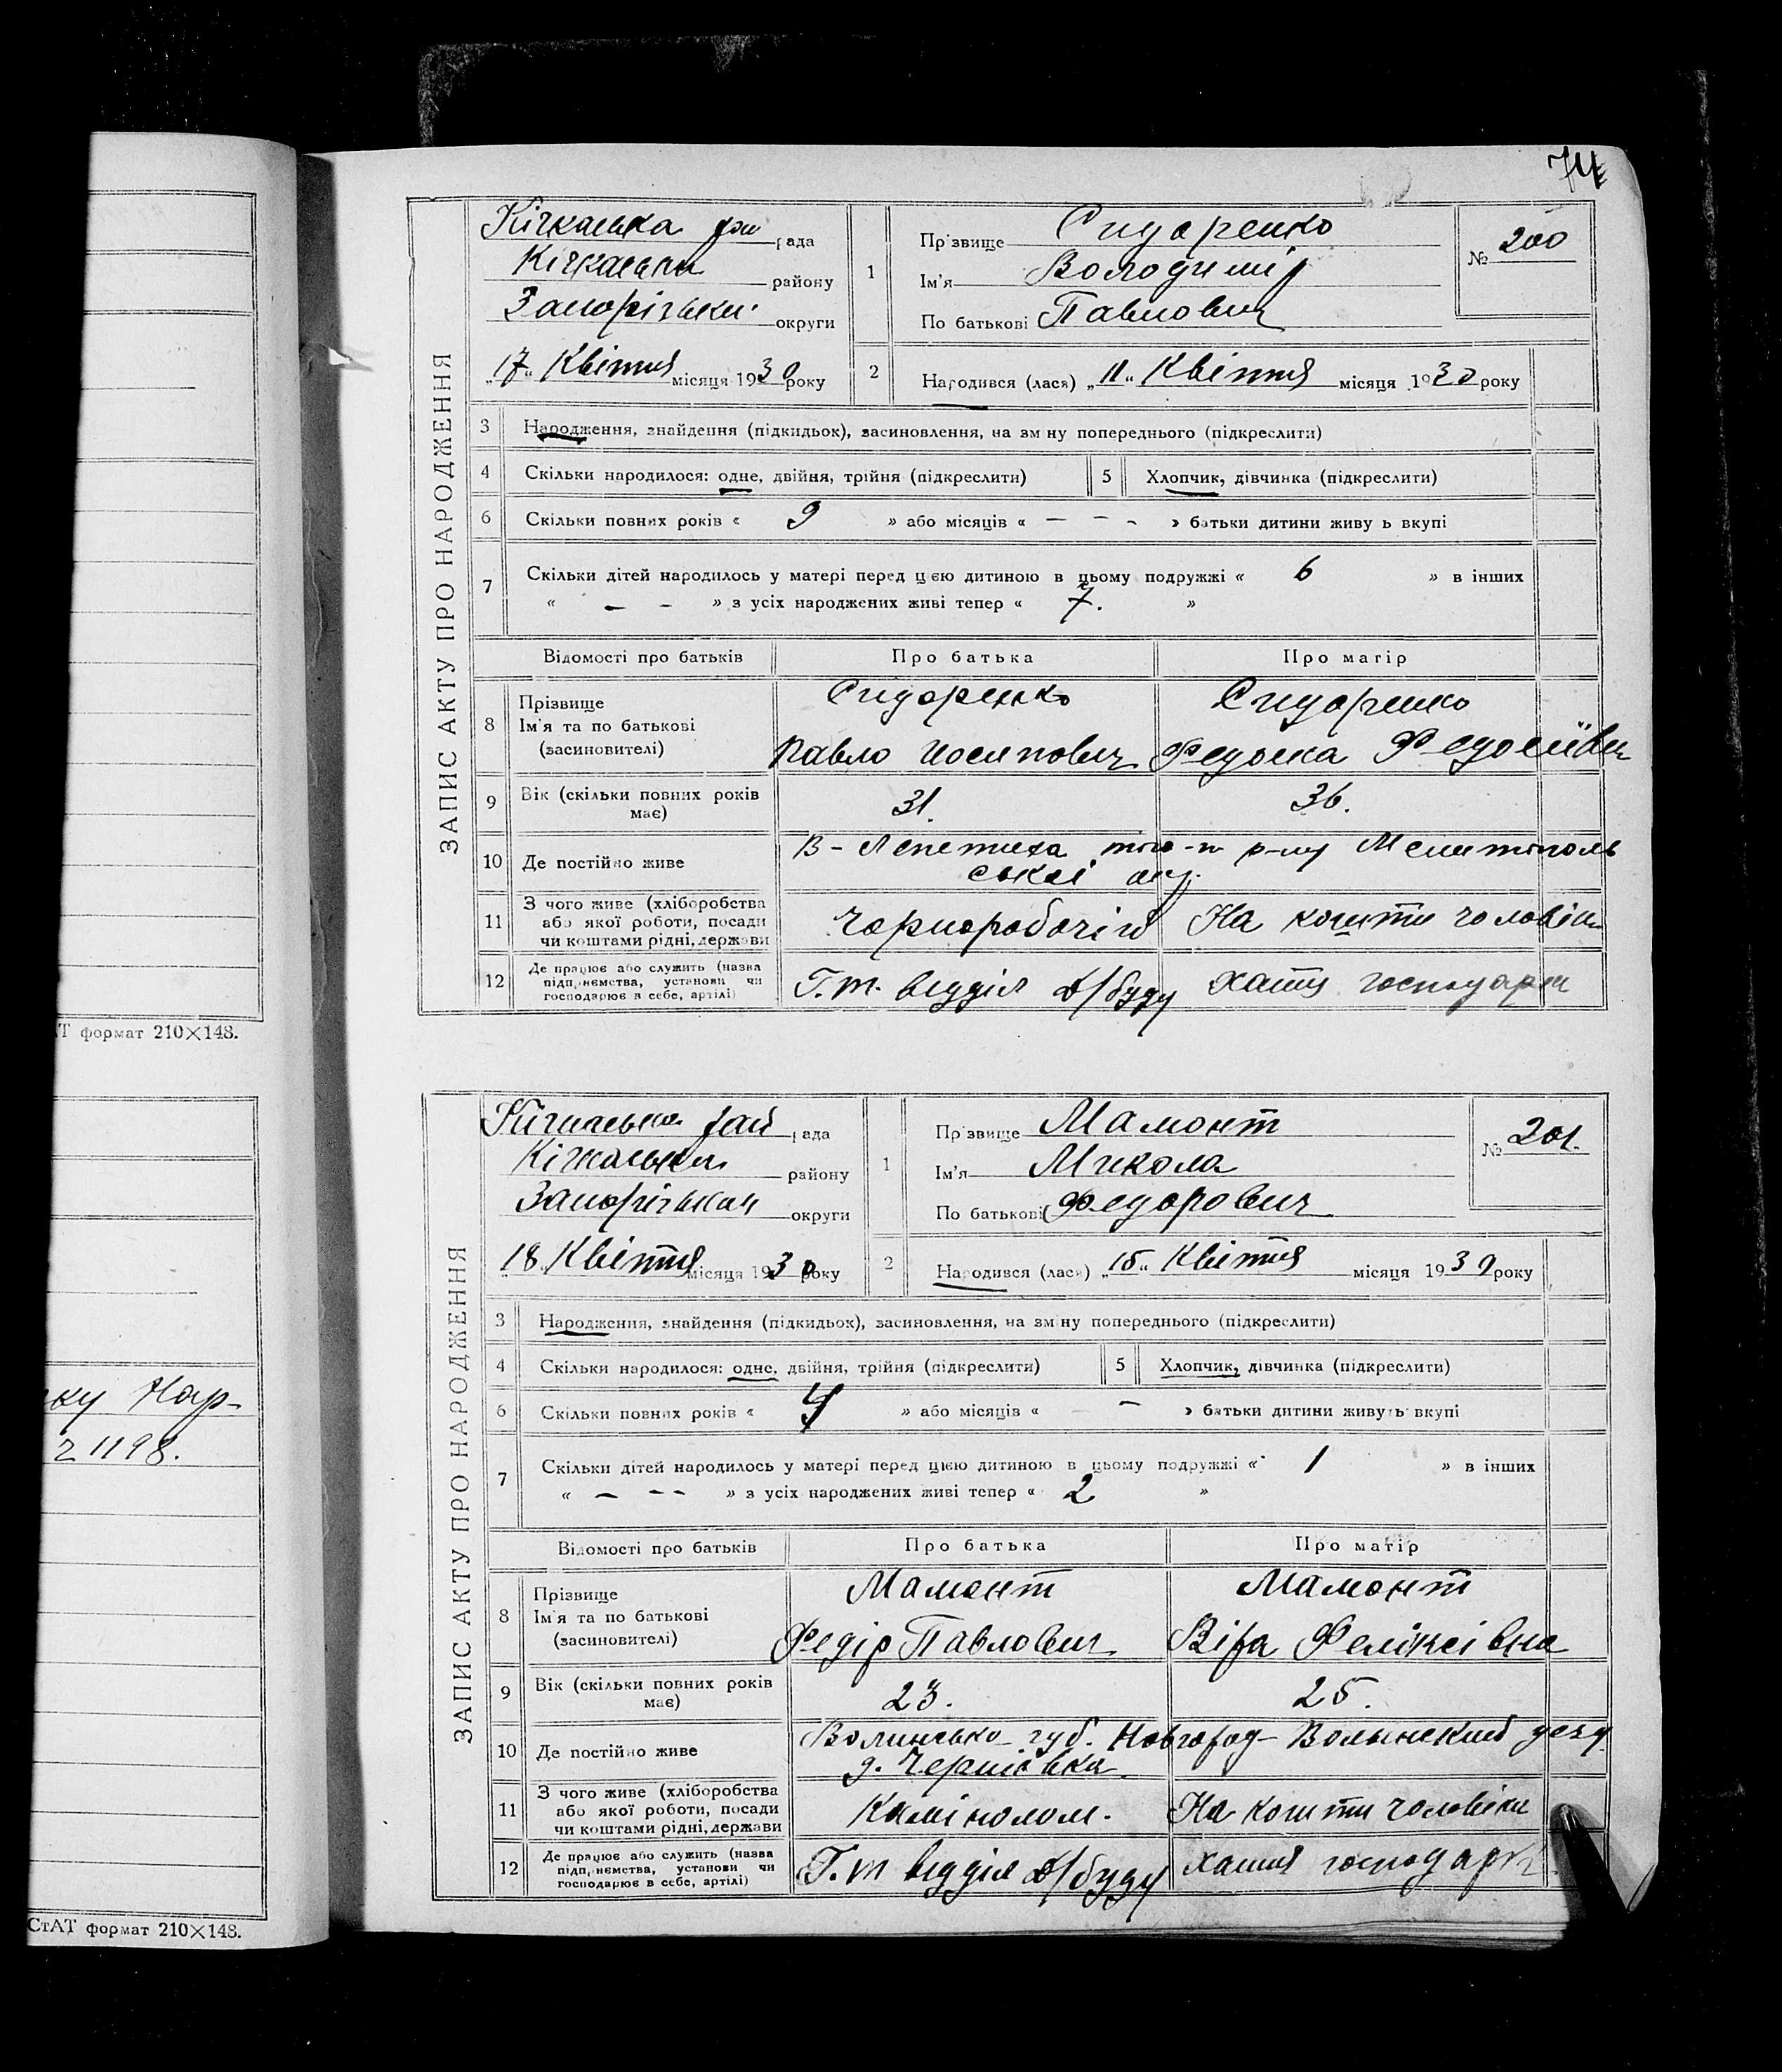 74
ЗАПИС АКТУ ПРО НАРОДЖЕННЯ
Кічкаська рай рада
Кічкаськи району
Запоріськи округи
„17“ Квітня місяця 1930 року
1
Прізвище Сидоренко
Ім'я Володимір
По батькові Павлович
№ 200
2
Народився (лася) „11“ Квітня місяця 1930 року
3 Народження, знайдення (підкидьок), засиновлення, на зміну попереднього (підкреслити)
4 Скільки народилося: одне, двійня, трійня (підкреслити)
5 Хлопчик, дівчинка (підкреслити)
6 Скільки повних років « 9 » або місяців « – – – » батьки дитини живуть вкупі
7 Скільки дітей народилось у матері перед цією дитиною в цьому подружжі « 6 » в інших
« – – » з усіх народжених живі тепер « 7. »
Відомості про батьків
Про батька
Про матір
8 Прізвище
Ім'я та по батькові
(засиновителі)
Сидоренко
Павло Иосипович
Сидоренко
Федоска Федосіївн
9 Вік (скільки повних років
має)
31.
36.
10 Де постійно живе
В-Лепетиха того-ж р-ну Мелитополь
ськоі окр.
11 З чого живе (хліборобства
або якої роботи, посади
чи коштами рідні, держави
Чорноробочій
На кошти чоловіка
12 Де працює або служить (назва
підприємства, установи чи
господарює в себе, артілі)
Г.т. відділ Д/буду
хатня господарк
ЗАПИС АКТУ ПРО НАРОДЖЕННЯ
Кічкаська рай рада
Кічкаськи району
Запоріськой округи
„18“ Квітня місяця 1930 року
1
Прізвище Мамонт
Ім'я Микола
По батькові Федорович
№ 201.
2
Народився (лася) „15“ Квітня місяця 1930 року
3 Народження, знайдення (підкидьок), засиновлення, на зміну попереднього (підкреслити)
4 Скільки народилося: одне, двійня, трійня (підкреслити)
5 Хлопчик, дівчинка (підкреслити)
6 Скільки повних років « 4 » або місяців « – » батьки дитини живуть вкупі
7 Скільки дітей народилось у матері перед цією дитиною в цьому подружжі « 1 » в інших
« – – – » з усіх народжених живі тепер « 2 »
Відомості про батьків
Про батька
Про матір
8 Прізвище
Ім'я та по батькові
(засиновителі)
Мамонт
Федір Павлович
Мамонт
Віра Феліксівна
9 Вік (скільки повних років
має)
23.
25.
10 Де постійно живе
Волинсько губ. Новгород-Волынский уезд
д. Чернівка
11 З чого живе (хліборобства
або якої роботи, посади
чи коштами рідні, держави
Камінолом.
На кошти чоловіка
12 Де працює або служить (назва
підприємства, установи чи
господарює в себе, артілі)
Г.т відділ Д/буду
хатня господарк
Т формат 210×148.
ку Нар-
1198.
СтАТ формат 210×148.